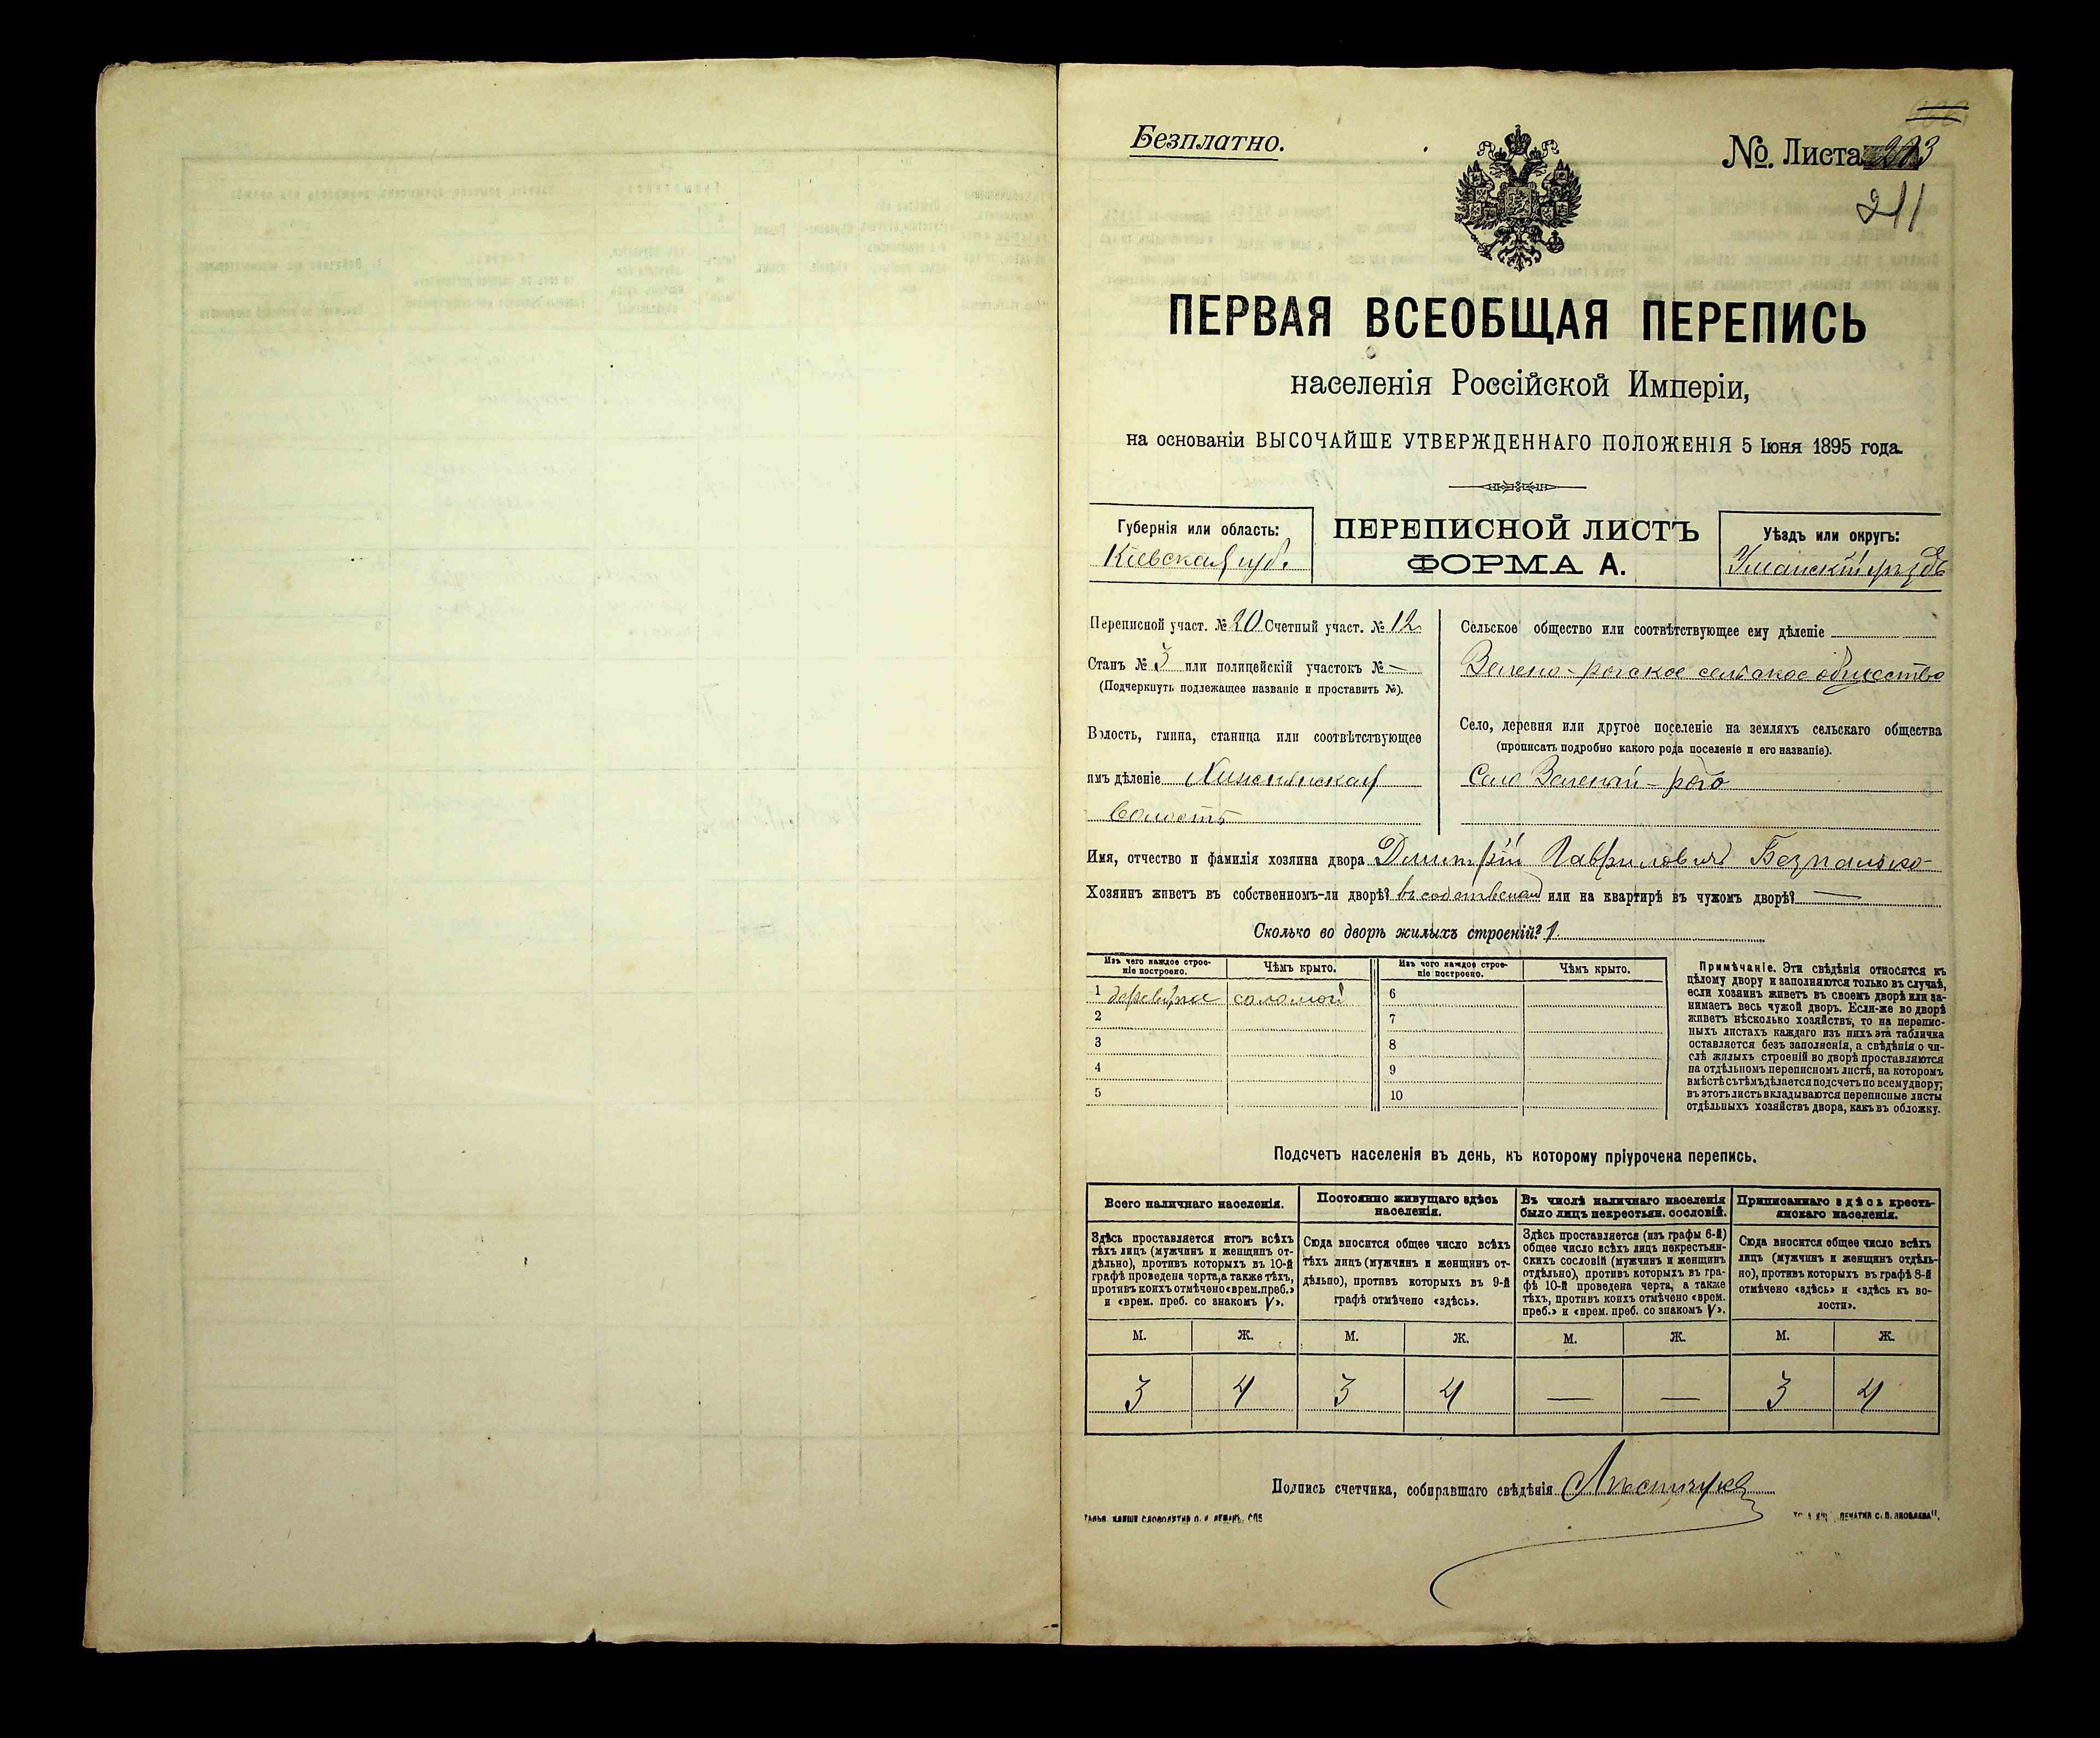 Безплатно.
№. Листа 213
211
ПЕРВАЯ ВСЕОБЩАЯ ПЕРЕПИСЬ
населенія Россійской Имперіи,
на основаніи ВЫСОЧАЙШЕ УТВЕРЖДЕННАГО ПОЛОЖЕНІЯ 5 Іюня 1895 года.
Губернія или область:
Кіевская губ.
ПЕРЕПИСНОЙ ЛИСТЪ
ФОРМА А.
Уѣздъ или округъ:
Уманскій уѣздъ
Переписной участ. № 20 Счетный участ. № 12
Станъ № 3 или полицейскій участокъ № —
(Подчеркнуть подлежащее названіе и проставить №).
Волость, гмина, станица или соотвѣтствующее
имъ дѣленіе
волость
Сельское общество или соотвѣтствующее ему дѣленіе
Зелено-рогское сельское общество
Село, деревня или другое поселеніе на земляхъ сельскаго общества
(прописать подробно какого рода поселеніе и его названіе).
Село Зеленый-рогъ
Имя, отчество и фамилія хозяина двора Дмитрій Гавриловичъ Безпалько
Хозяинъ живетъ въ собственномъ-ли дворѣ? въ собственом или на квартирѣ въ чужомъ дворѣ? —
Сколько во дворѣ жилыхъ строеній? 1.
Изъ чего каждое строе-
ніе построено.
Чѣмъ крыто.
Изъ чего каждое строе-
ніе построено.
Чѣмъ крыто.
1 соломой 6
2 7
3 8
4 9
5 10
Примѣчаніе. Эти свѣдѣнія относятся къ
цѣлому двору и заполняются только въ случаѣ,
если хозяинъ живетъ въ своемъ дворѣ или за-
нимаетъ весь чужой дворъ. Если-же во дворѣ
живетъ нѣсколько хозяйствъ, то на перепис-
ныхъ листахъ каждаго изъ нихъ эта табличка
оставляется безъ заполненія, а свѣдѣнія о чи-
слѣ жилыхъ строеній во дворѣ проставляются
на отдѣльномъ переписномъ листѣ, на которомъ
вмѣстѣ съ тѣмъ дѣлается подсчетъ по всему двору;
въ этотъ листъ вкладываются переписные листы
отдѣльныхъ хозяйствъ двора, какъ въ обложку.
Подсчетъ населенія въ день, къ которому пріурочена перепись.
Всего наличнаго населенія.
Здѣсь проставляется итогъ всѣхъ
тѣхъ лицъ (мужчинъ и женщинъ от-
дѣльно), противъ которыхъ въ 10-й
графѣ проведена черта, а также тѣхъ,
противъ коихъ отмѣчено «врем. преб.»
и «врем. преб. со знакомъ V».
Постоянно живущаго здѣсь
населенія.
Сюда вносится общее число всѣхъ
тѣхъ лицъ (мужчинъ и женщинъ от-
дѣльно), противъ которыхъ въ 9-й
графѣ отмѣчено «здѣсь».
Въ числѣ наличнаго населенія
было лицъ некрестьян. сословій.
Здѣсь проставляется (изъ графы 6-й)
общее число всѣхъ лицъ некрестьян-
скихъ сословій (мужчинъ и женщинъ
отдѣльно), противъ которыхъ въ гра-
фѣ 10-й проведена черта, а также
тѣхъ, противъ коихъ отмѣчено «врем.
преб.» и «врем. преб. со знакомъ V».
Приписаннаго здѣсь кресть-
янскаго населенія.
Сюда вносится общее число всѣхъ
лицъ (мужчинъ и женщинъ отдѣль-
но), противъ которыхъ въ графѣ 8-й
отмѣчено «здѣсь» и «здѣсь къ во-
лости».
М. Ж. М. Ж. М. Ж. М. Ж.
3 4 3 4 — — 3 4
Подпись счетчика, собиравшаго свѣдѣнія